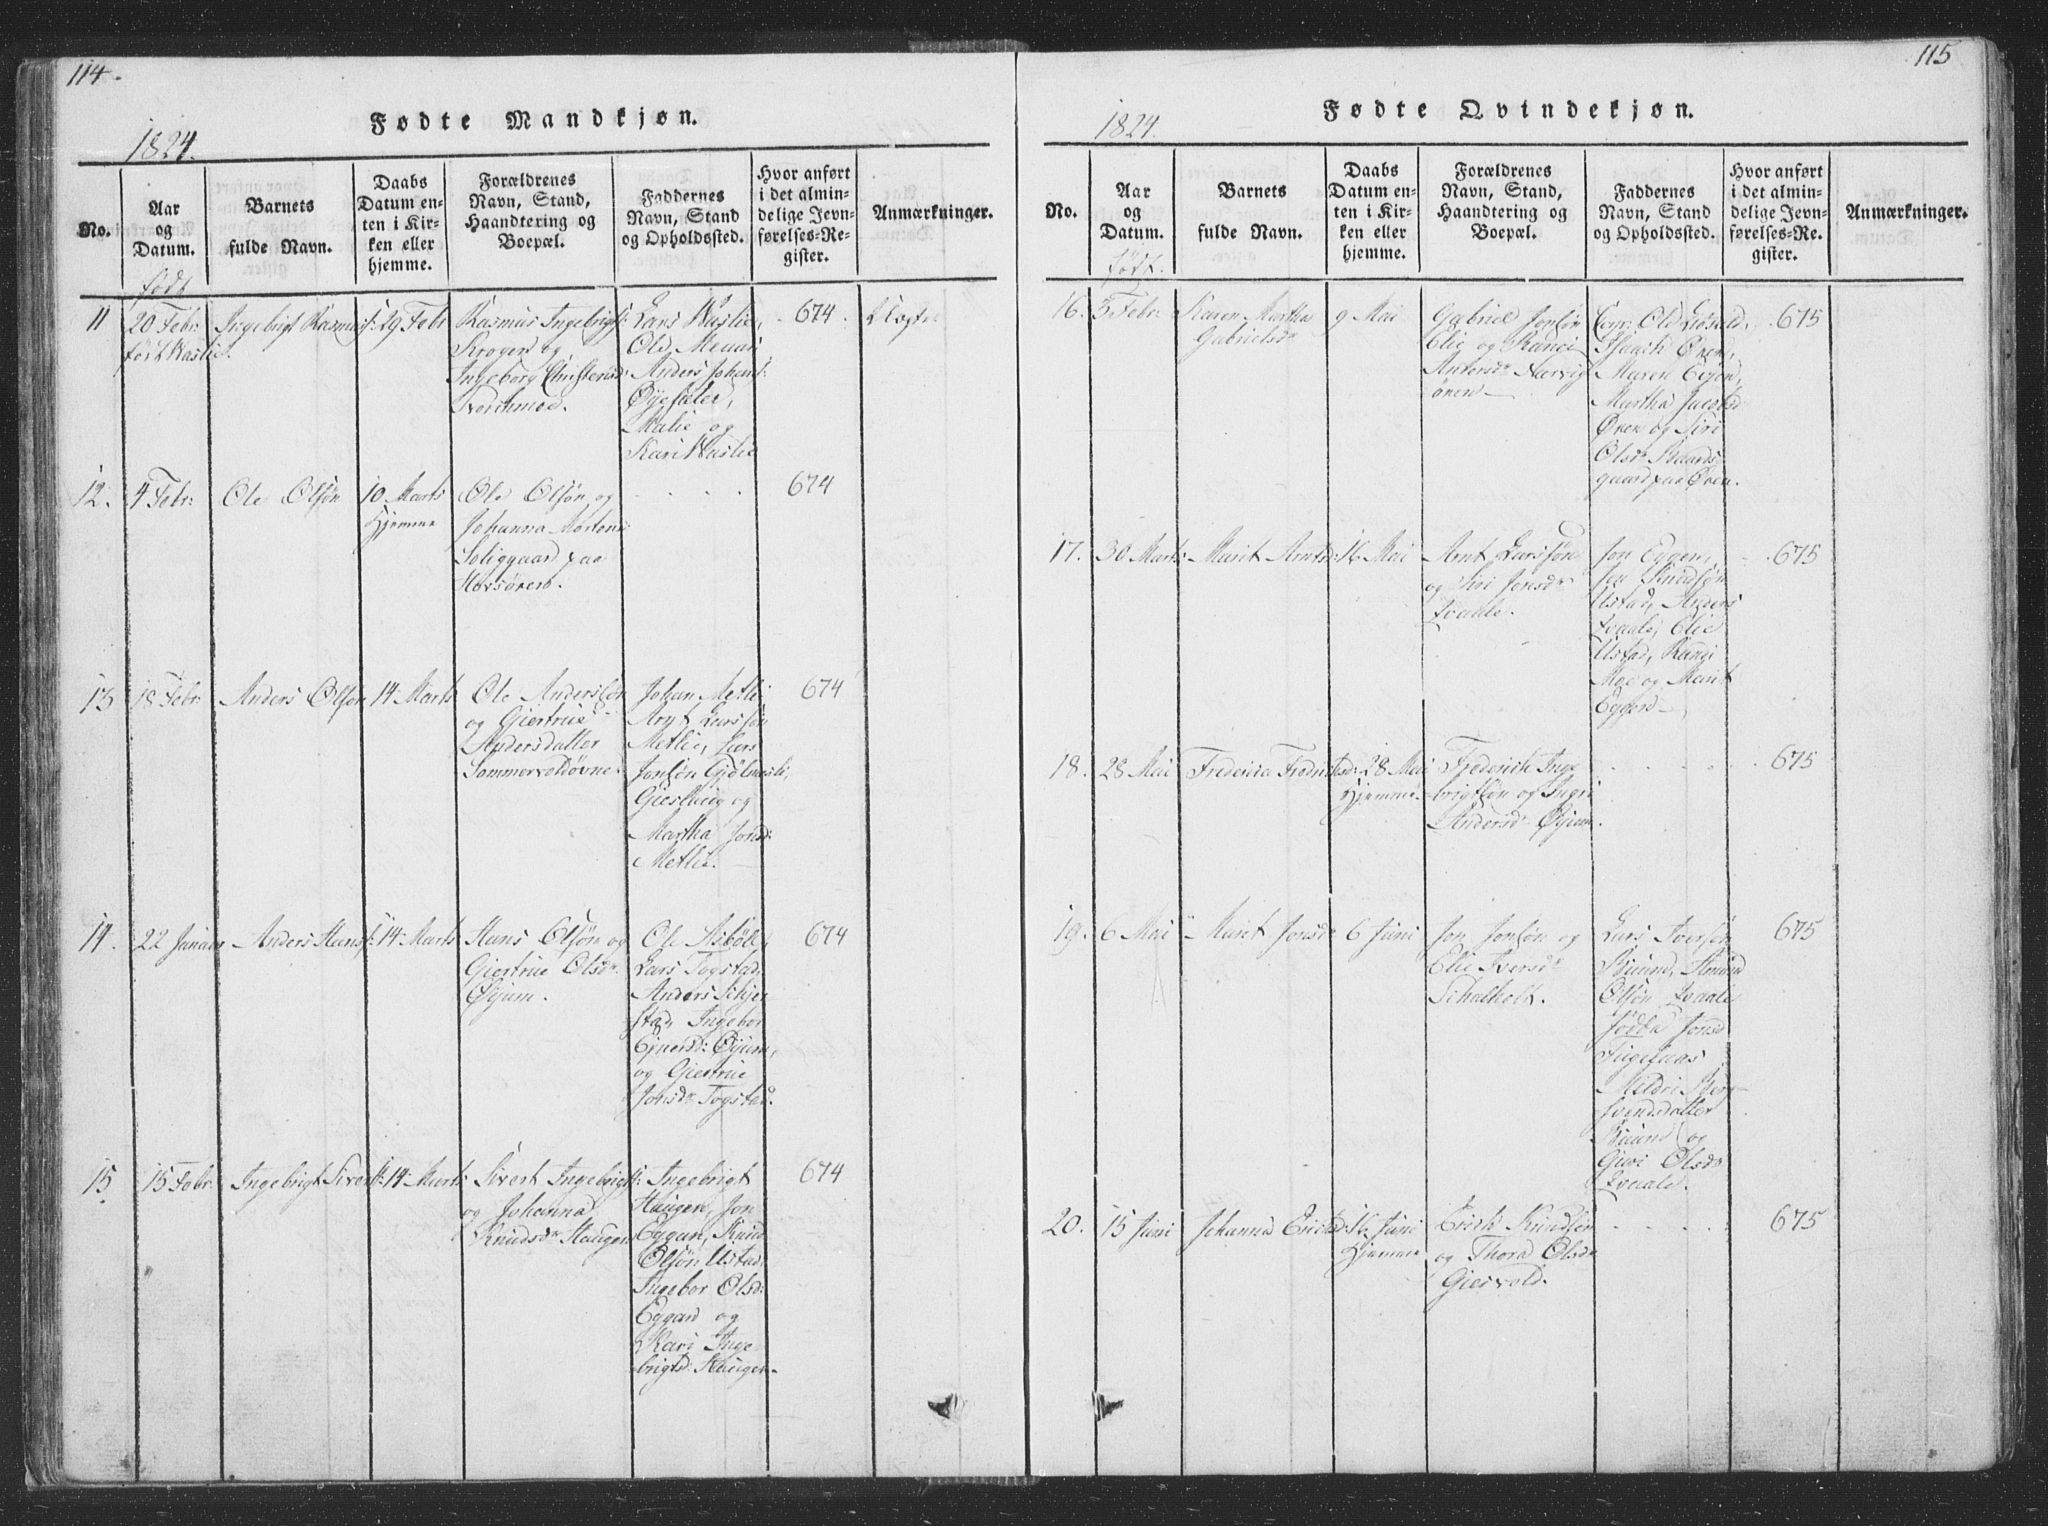 114.
Fødte Mandkjøn.
1824.
No.
Aar
og
Datum.
Barnets
fulde Navn.
Daabs
Datum en-
ten i Kir-
ken eller
hjemme.
Forældrenes
Navn, Stand,
Haandtering og
Boepæl.
Faddernes
Navn, Stand
og Opholdssted.
Hvor anført
i det almin-
delige Jevn-
førelses-Re-
gister.
Anmærkninger.
født
11
20 Febr:
født
Ingebrigt Rasmusf:
29 Febr
Rasmus Ingebrigtf:
og
Ingeborg Christensd:
Lars
Ole
Anders Johanf:
Malie og
Kari
674.
12.
4 Febr:
Ole Olsøn
10 Marts
Hjemme
Ole Olsøn og
Johanna Mortensd
paa
674
13
18 Febr:
Anders Olsøn
14 Marts
Ole Andersøn
og Giertrue
Andersdatter
Johan Metli
Arnt Larsøn
Metlie, Lars
Jonsøn Gjølmesli,
og
Martha Jonsd:
Metlie.
674
14.
22 Januar
Anders Hansf:
14 Marts
Hans Olsøn og
Giertrue Olsdr
Øyum.
Ole Asbøle,
Lars Togstad,
Anders Schjer
stad, Ingebor
Ejnersd: Øyum,
og Giertrue
Jonsdr Togstad.
674
15
15 Febr:
Ingebrigt Sivertf:
14 Marts
Sivert Ingebrigtf:
og Johanna
Knudsdr Haugen
Ingebrigt
Haugen, Jon
Eggen, Knud
Olsøn Ustad,
Ingebor Olsd:
Eggen og
Kari Inge
brigtsd: Haugen.
674
115
Fødte Qvindekjøn.
1824.
No.
Aar
og
Datum.
Barnets
fulde Navn.
Daabs
Datum en-
ten i Kir-
ken eller
hjemme.
Forældrenes
Navn, Stand,
Haandtering og
Boepæl.
Faddernes
Navn, Stand
og Opholdssted.
Hvor anført
i det almin-
delige Jevn-
førelses-Re-
gister.
Anmærkninger.
født.
16.
5 Febr:
Karen Martha
Gabrielsdr
9 Mai
Gabriel Jonsøn
Elie og Rangi
Andersdr Narvig
ören
Ole
Øren,
Maren Eggen,
Martha Jacobsd
Øren og Siri
Olsdr Baards
gaard paa Øren.
675
17.
30 Marts
Marit Arntsd:
16 Mai
Arnt Larsøn
og Siri Jonsdr
Qvaale.
Jon Eggen,
Knudsøn
Ustad, Anders
Qvaale, Elie
Ustad, Rangi
Moe og Marit
Eggen
675
18.
28 Mai
Frederica Fredriksd:
28 Mai
Hjemme
Frederich Inge
brigtsøn og Ingri
Andersdr Øyum.
675
19.
6 Mai
Marit Jonsdr
6 Juni
Jon Jonsøn og
Elie Iversdr
Schalholt.
Lars Iversøn
Amund
Olsøn Qvaale
Jonsd
Mildri Ber
svendsdatter
og
Guri Olsdr
Qvaale.
675
20.
15 Juni
Johanna Ericsd:
16 Juni
Hjemme
Erich Knudsøn
og Thora Olsdr
Giesvold.
675